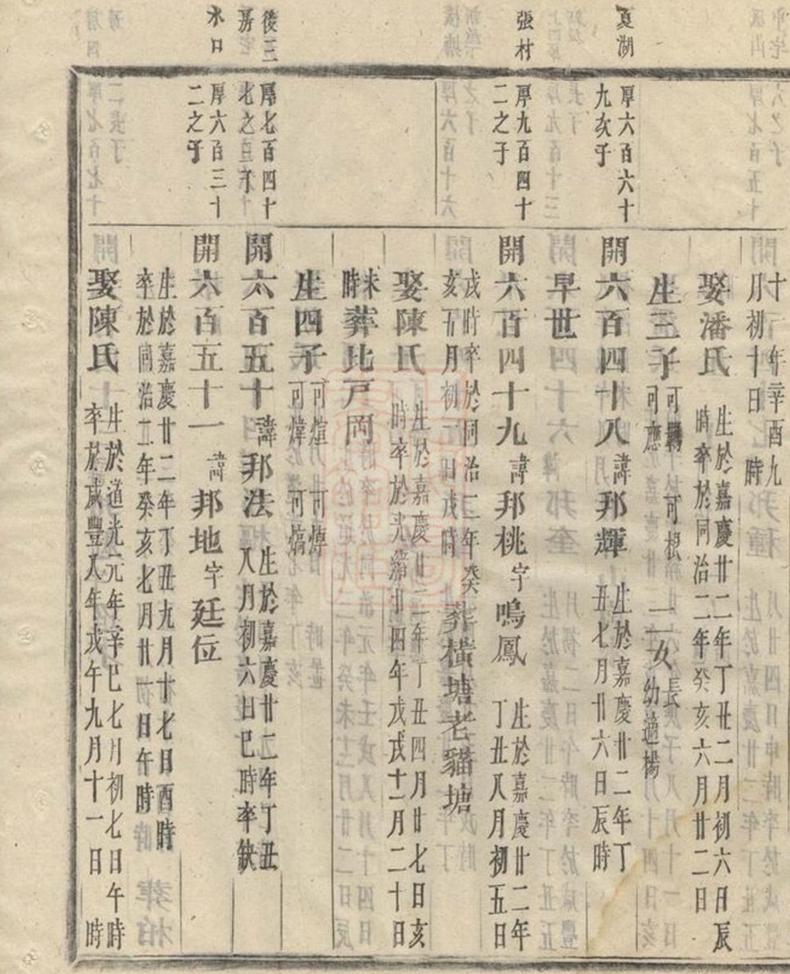 十　年辛酉九
月初十日　時
娶潘氏
生於嘉慶廿二年丁丑二月初六日辰
時卒於同治二年癸亥六月廿二日
生三子
可應　可根
一女
長
幼適楊
夏湖
厚六百六十
九次子
開六百四十八諱邦輝
生於嘉慶廿二年丁
丑七月廿六日辰時
早世
張村
厚九百四十
二之子
開六百四十九諱邦桃字鳴鳳
生於嘉慶廿二年
丁丑八月初五日
戌時卒於同治二年癸
亥五月初二日戌時
葬橫塘老貓塘
娶陳氏
生於嘉慶廿二年丁丑四月廿七日亥
時卒於光緒廿四年戊戌十二月二十日
未
時
葬比戸岡
生四子
可煊　可煒
可燁　可熇
後三
嘉宅
厚七百四十
七之子
開六百五十諱邦法
生於嘉慶廿二年丁丑
八月初六日巳時卒缺
水口
厚六百三十
二之子
開六百五十一諱邦地字廷位
生於嘉慶廿二年丁丑九月十七日酉時
卒於同治二年癸亥七月廿一日午時
娶陳氏
生於道光元年辛巳七月初七日午時
卒於咸豐八年戊午九月十一日　時